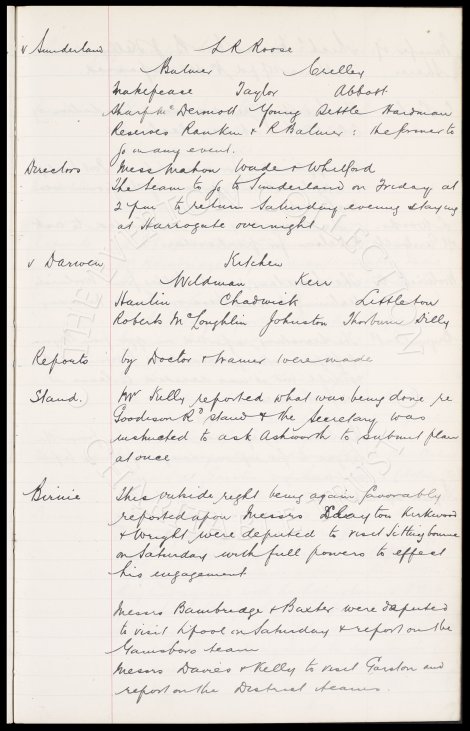 v Sunderland L R Roose
Balmer Crelley
Makepeace Taylor Abbott
Sharp McDermott Young Settle Hardman
Reserves Rankin & R Balmer: the former to
go in any event.
Directors Mess Mahon Wade & Whitford
The team to go to Sunderland on Friday at
2 pm to return Saturday evening staying
at Harrogate overnight
v Darwen Kitchen
Wildman Kerr
Hamlin Chadwick Littleton
Roberts McLoughlin Johnston Thorburn Dilly
Reports by Doctor & trainer were made
Stand. Mr Kelly reported what was being done re
Goodison Rd stand & the Secretary was
instructed to ask Ashworth to submit plan
at once
Birnie This outside right being again favorably
reported upon Messrs Clayton Kirkwood
& Wright were deputed to visit Sittingbourne
on Saturday with full powers to effect
his engagement
Messrs Bainbridge & Baxter were deputed
to visit L'pool on Saturday & report on the
Gainsboro team
Messrs Davies & Kelly to visit Garston and
report on the District teams.
THE EVERTON COLLECTION